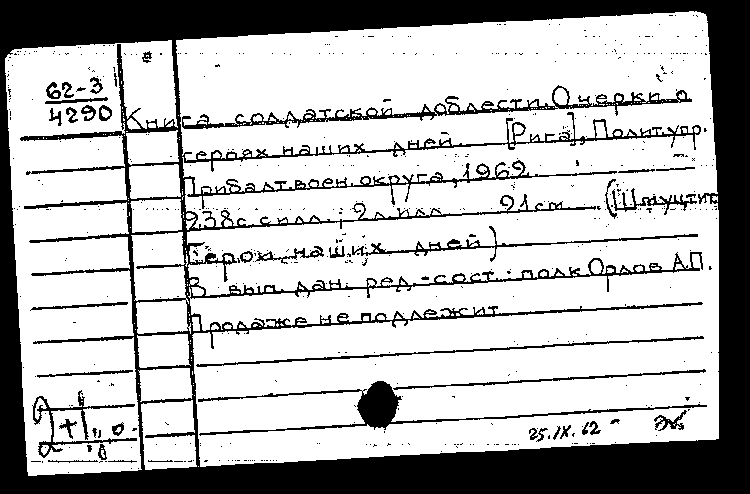 62-3
4290
Книга солдатской доблести. Очерки о
героях наших дней. [Рига], Полит.упр.
Прибалт.воен.округа, 1962.
238с. с илл.; 2л.илл. 21см. (Штуцтит
Герои наших дней).
В вып. дан. ред.-сост.: полк Орлов А.П.
Продаже не подлежит
25.IX.62